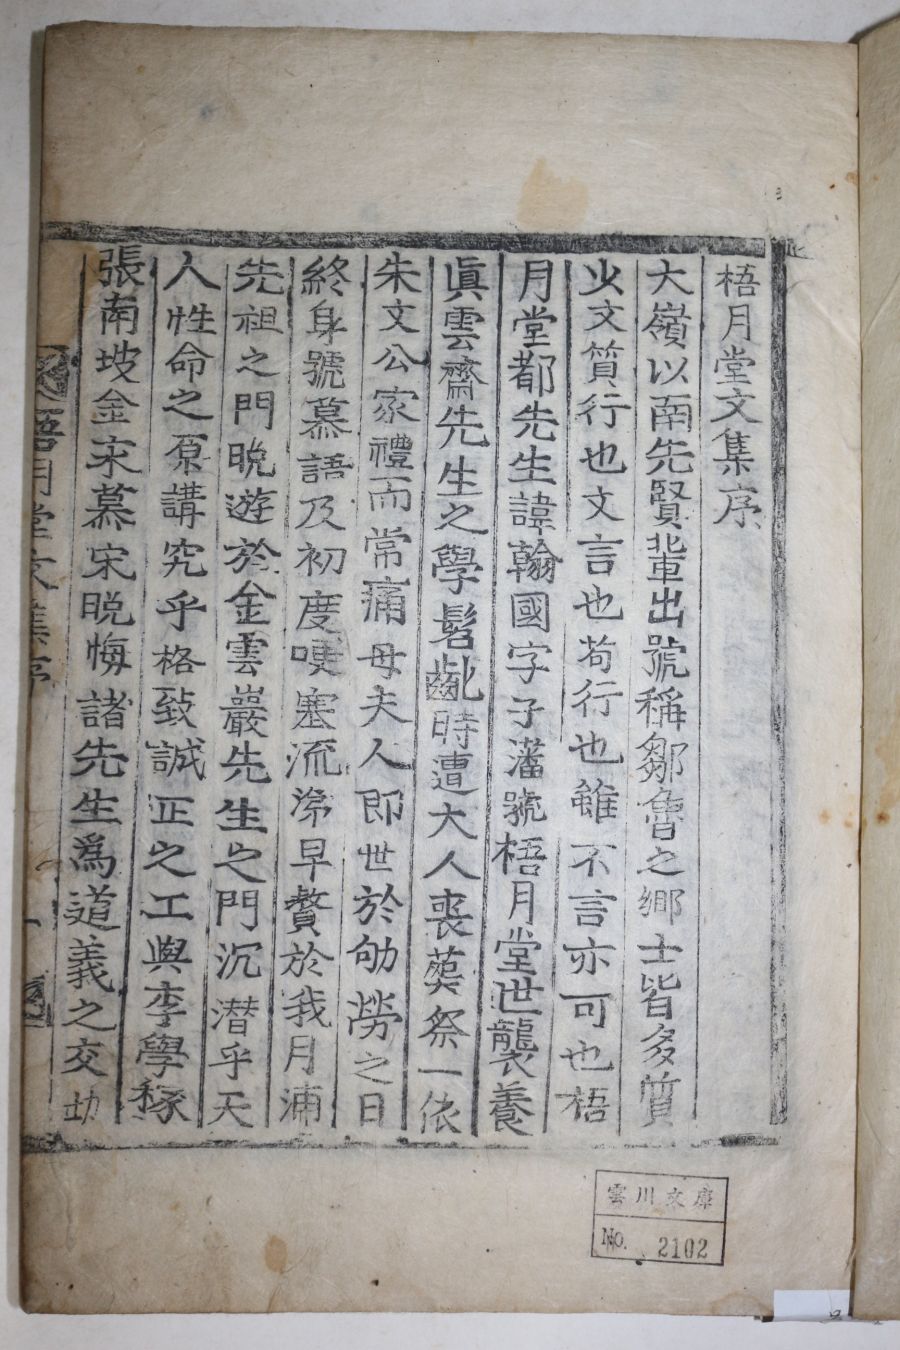 梧月堂文集序
大嶺以南先賢輩出號稱鄒魯之鄕士皆多質
少文質行也文言也苟行也雖不言亦可也梧
月堂都先生諱翰國字子瀋號梧月堂世襲養
眞雲齋先生之學髫齔時遭大人喪葬祭一依
朱文公家禮而常痛母夫人即世於劬勞之日
終身號慕語及初度哽塞流涕早贅於我月浦
先祖之門晩遊於金雲巖先生之門沉潜乎天
人性命之原講究乎格致誠正之工與李學稼
張南坡金宋慕宋晩悔諸先生爲道義之交幼
梧月堂文集序
一
雲川文庫
No. 2102